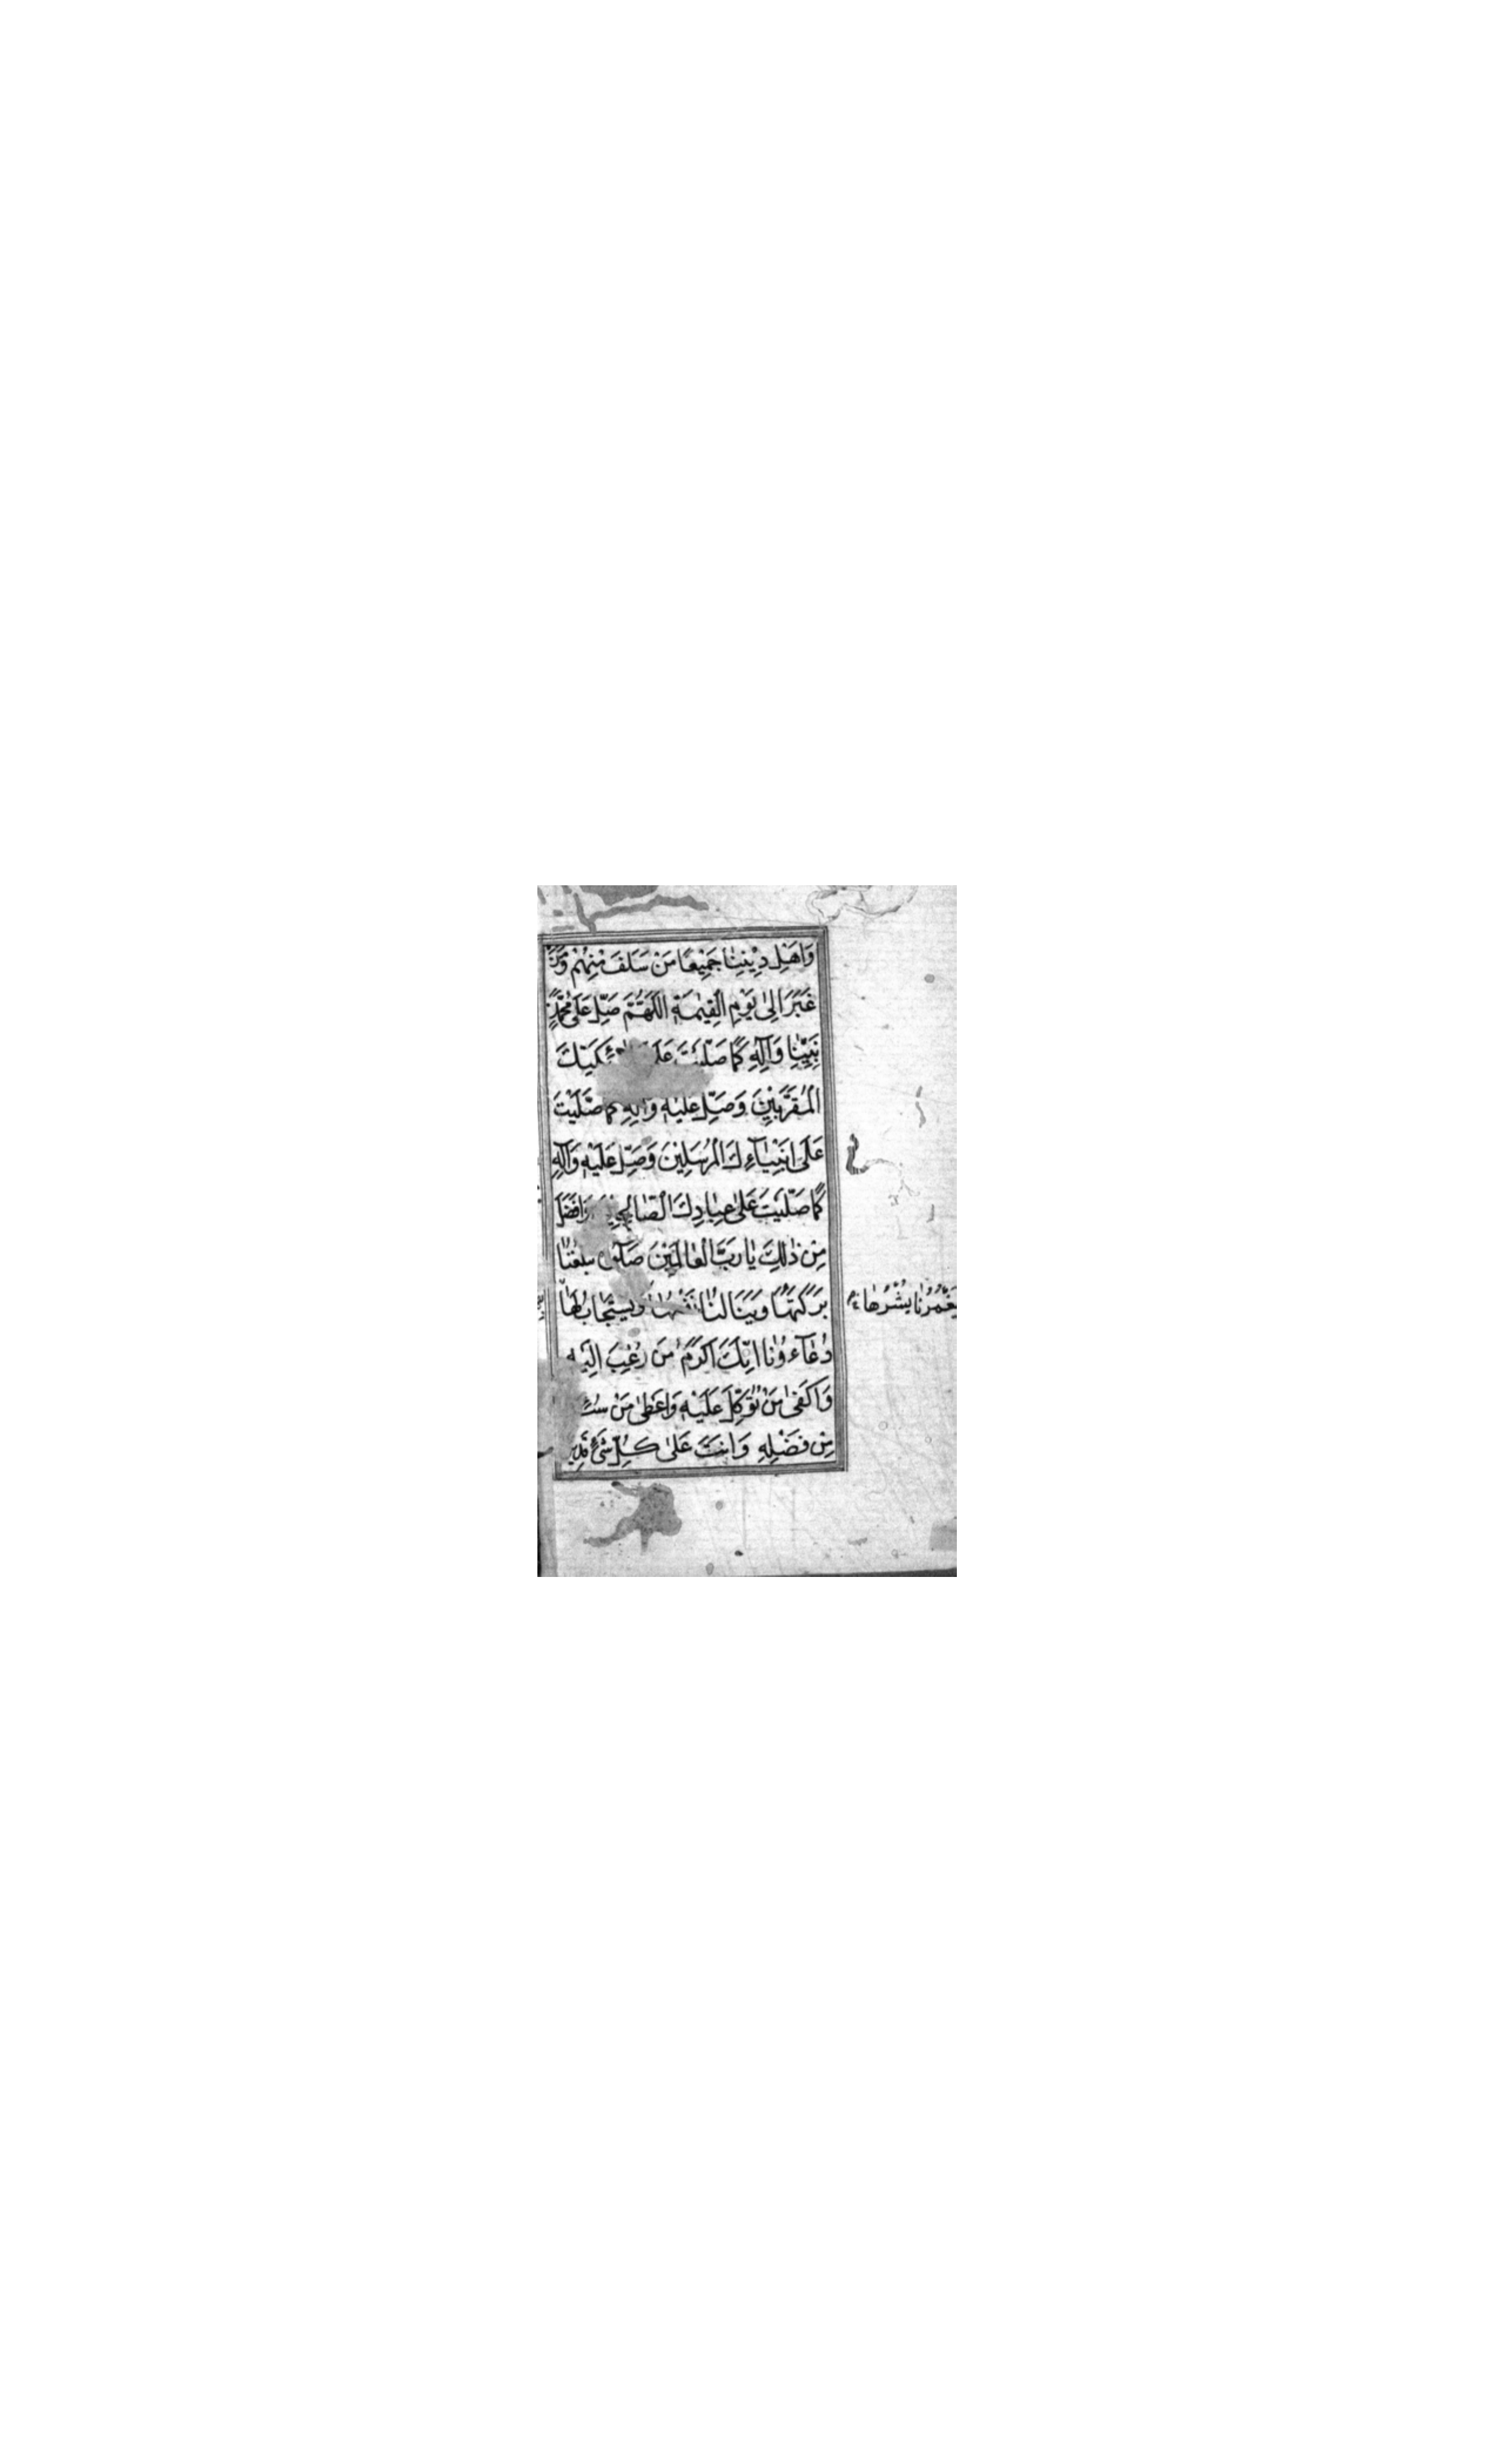 وَاَهْلِ دِيْنِنٰا جَمِيْعًا مَنْ سَلَفَ مِنْهُمْ وَمَنْ
غَبَرَ اِلىٰ يَوْمِ الْقِيٰمَةِ اَللّٰهُمَّ صَلِّ عَلىٰ مُحَمَّدٍ
نَبِيِّنٰا وَآلِهِ كَمٰا صَلَّيْتَ
الْمُقَرَّبِيْنَ وَصَلِّ عَلَيْهِ وَآلِهِ كَمٰا صَلَّيْتَ
عَلىٰ اَنْبِيٰآءِكَ الْمُرْسَلِيْنَ وَصَلِّ عَلَيْهِ وَآلِهِ
كَمٰا صَلَّيْتَ عَلىٰ عِبٰادِكَ الصّٰالِحِيْنَ وَاَفْضَلَ
مِنْ ذٰلِكَ يٰا رَبَّ الْعٰالَمِيْنَ
بَرَكَتُهٰا وَيَنٰالُنٰا نَفْعُهٰا وَيُسْتَجٰابُ لَهٰا
دُعٰآءُنٰا اِنَّكَ اَكْرَمُ مَنْ رُغِبَ اِلَيْهِ
وَاَكْفىٰ مَنْ تُوُكِّلَ عَلَيْهِ وَاَعْطىٰ مَنْ
مِنْ فَضْلِهِ وَاَنْتَ عَلىٰ كُلِّ شَيْءٍ قَدِيْر
يَغْمُرُنٰا يُسْرُهٰا